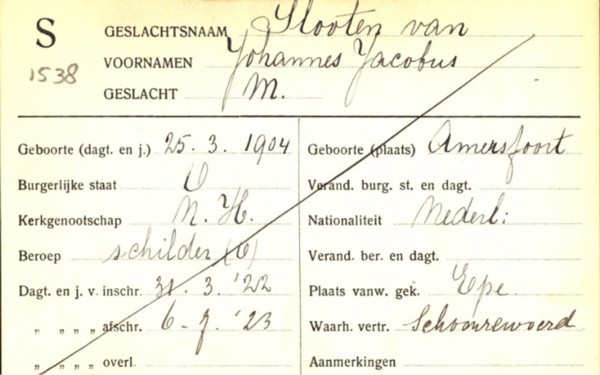 S
1538
GESLACHTSNAAM Slooten van
VOORNAMEN Johannes Jacobus
GESLACHT M.
Geboorte (dagt. en j.) 25. 3. 1904
Geboorte (plaats) Amersfoort
Burgerlijke staat O
Verand. burg. st. en dagt.
Kerkgenootschap N. H.
Nationaliteit Nederl:
Beroep schilder (O)
Verand. ber. en dagt.
Dagt. en j. v. inschr. 31. 3. '22
Plaats vanw. gek. Epe
" " " " afschr. 6 - 7. '23
Waarh. vertr. Schoonrewoerd
" " " " overl.
Aanmerkingen